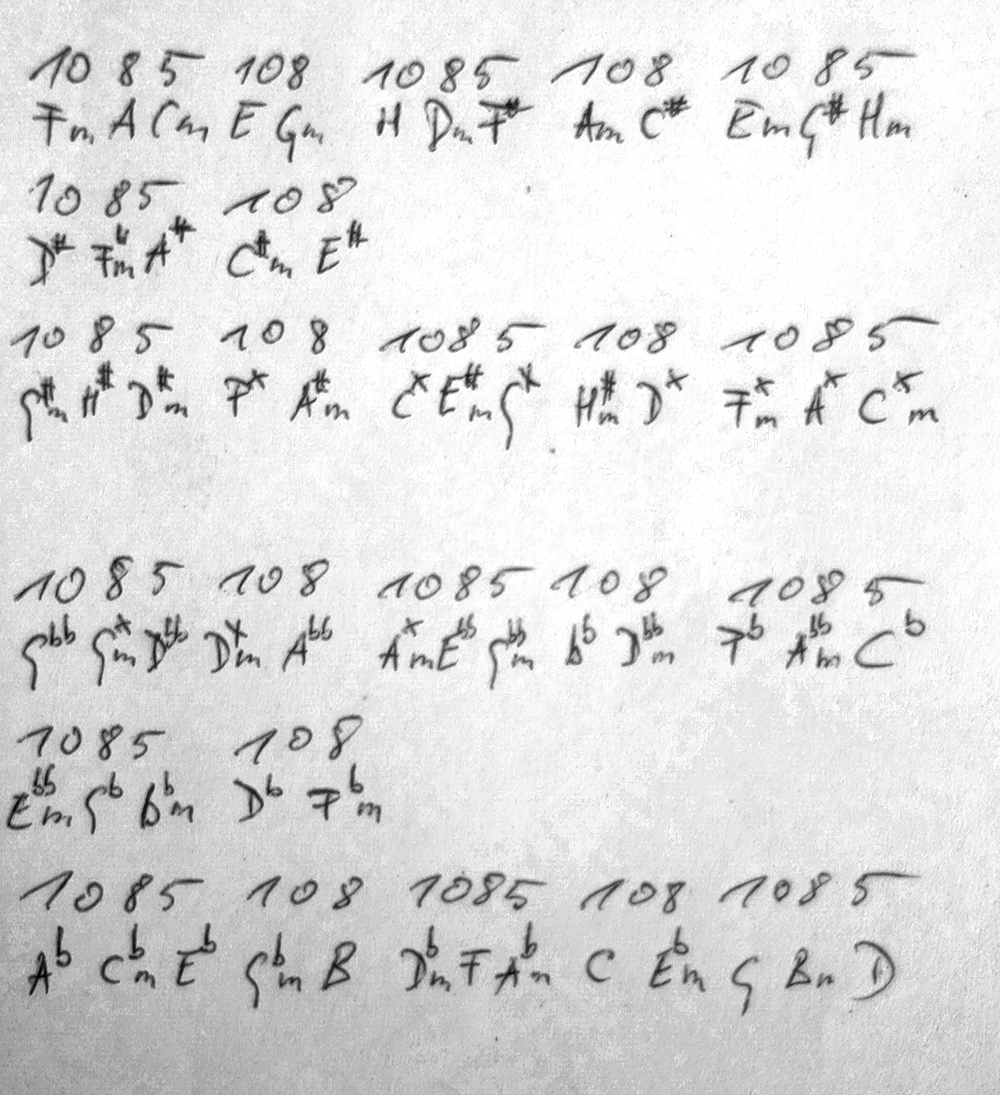 10 8 5 10 8 10 8 5 10 8 10 8 5
Fm A Cm E Gm H Dm F# Am C# Em G# Hm
10 8 5 10 8
D# F#m A# C#m E#
10 8 5 10 8 10 8 5 10 8 10 8 5
G#m H# D#m Fx A#m Cx E#m Gx H#m Dx Fxm Ax Cxm
10 8 5 10 8 10 8 5 10 8 10 8 5
Gbb Gxm Dbb Dxm Abb Axm Ebb Gbbm bb Dbbm Fb Abbm Cb
10 8 5 10 8
Ebbm Gb bbm Db Fbm
10 8 5 10 8 10 8 5 10 8 10 8 5
Ab Cbm Eb Gbm B Dbm F Abm C Ebm G Bm D